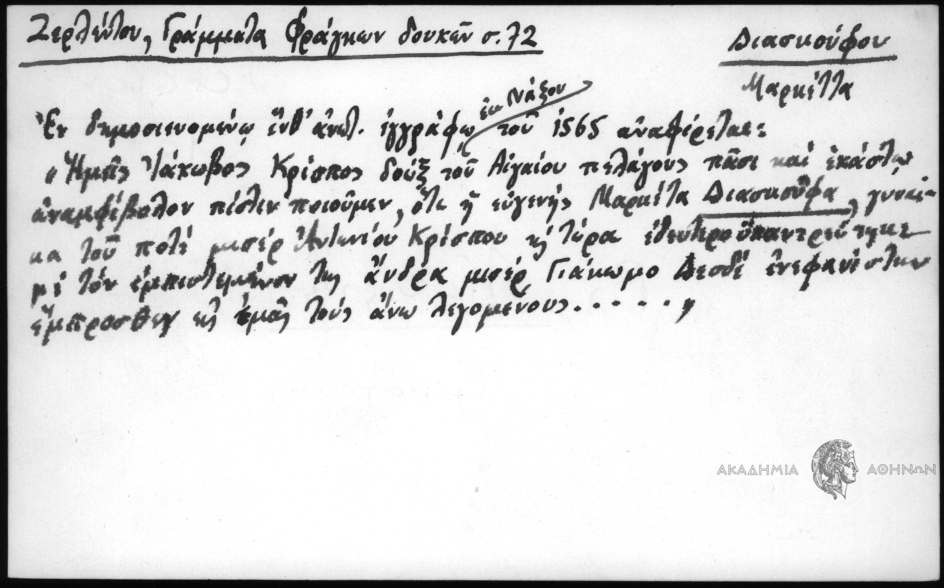 Ζερλέντου, Γράμματα Φράγκων δουκῶν σ. 72
Διασκούφου
Μαρκέττα
ἐκ Νάξου
Ἐν δημοσιευομένῳ ἔνθ' ἀνωτ. ἐγγράφῳ τοῦ 1565 ἀναφέρεται:
"Ἡμεῖς Ἰάκωβος Κρίσπος δούξ τοῦ Αἰγαίου πελάγους πᾶσι καί ἑκάστῳ
ἀναμφίβολον πίστιν ποιοῦμεν, ὅτι ἡ εὐγενής Μαρκέτα Διασκοῦφα, γυναί-
κα τοῦ ποτέ μισέρ Ἀντωνίου Κρίσπου κ τώρα ἐδευτεροϋπαντρεύτηκε
μέ τόν ἐμπιστεμένον της ἄνδρα μισέρ Γιάκωμο Δεσδέ ἐνεφανίστην
ἔμπροσθεν εἰς ἐμᾶς τούς ἄνω λεγομένους . . . . . "
ΑΚΑΔΗΜΙΑ ΑΘΗΝΩΝ